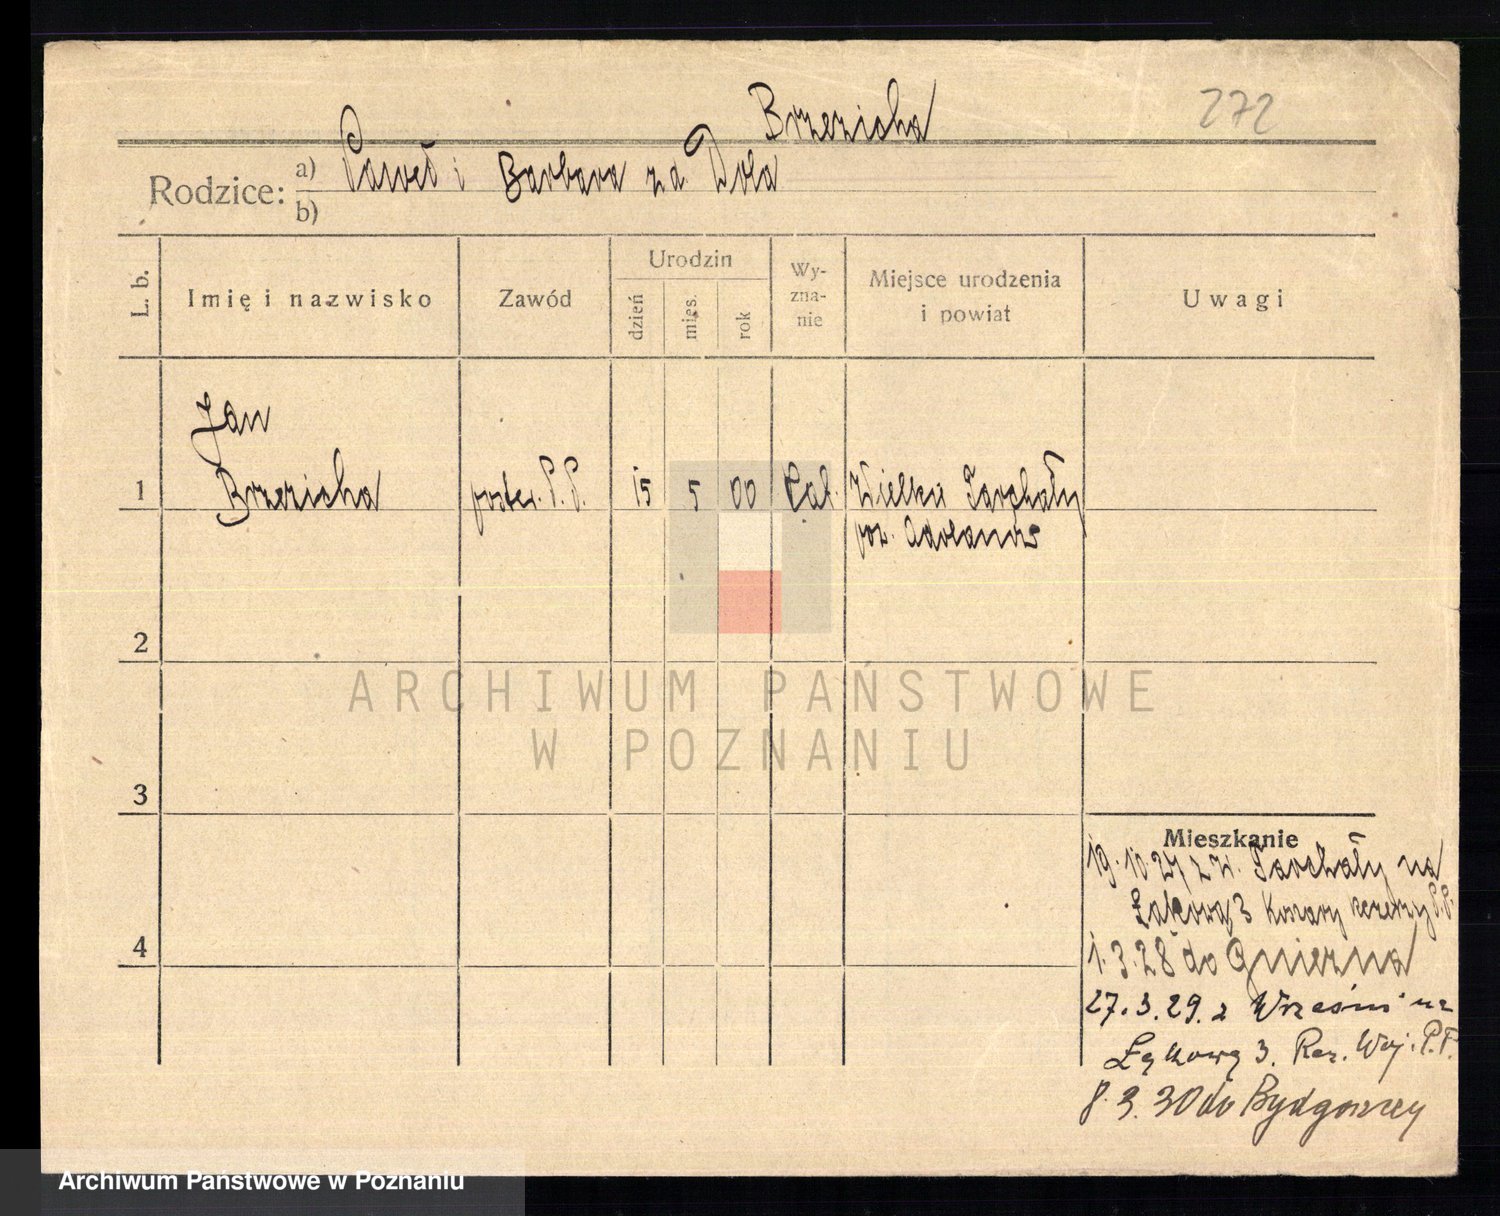 Brzezicha
272
Rodzice: a) Paweł i Barbara za Doła
b)
L. b.
Imię i nazwisko
Zawód
Urodzin
dzień
mies.
rok
Wy-
zna-
nie
Miejsce urodzenia
i powiat
Uwagi
Jan
1 Brzezicha poster. P.P. 15 5 00 kat. Wielkie Tarchały
pow. Adolanów
2
ARCHIWUM PAŃSTWOWE
W POZNANIU
3
Mieszkanie
19.10.27 z W. Tarchały na
Łąkową 3 Koszary rezerwy P.P.
4
1.3.28 do Gniezna
27.3.29 z Wrześni na
Łąkową 3. Rez. Woj. P.P.
8.3.30 do Bydgoszczy
Archiwum Państwowe w Poznaniu